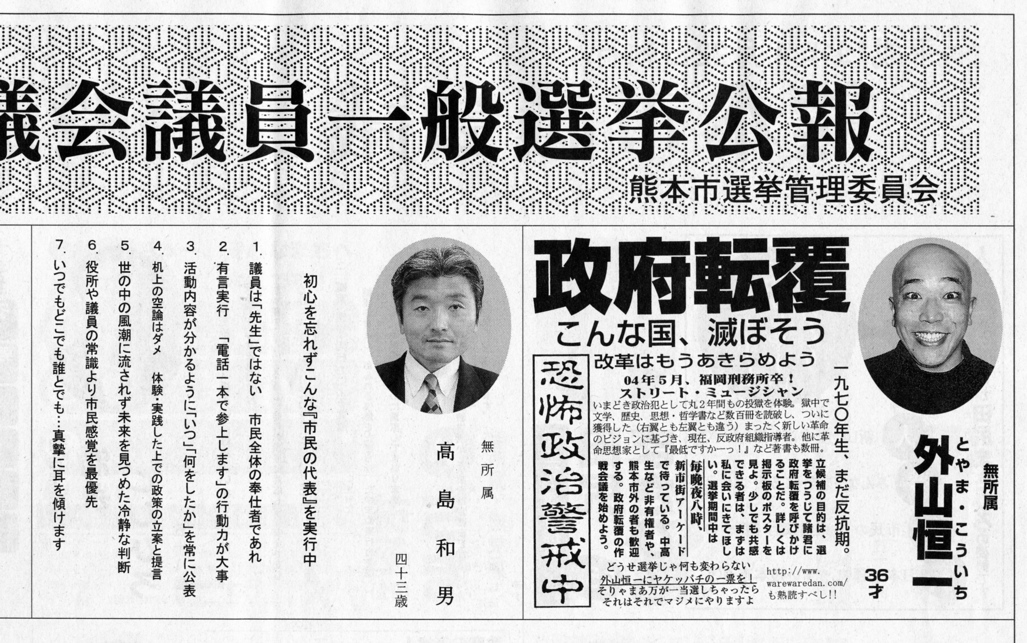 議会議員一般選挙公報
熊本市選挙管理委員会
無所属
とやま・こういち
外山恒一
36才
政府転覆
こんな国、滅ぼそう
改革はもうあきらめよう
一九七〇年生、まだ反抗期。
04年5月、福岡刑務所卒！
ストリート・ミュージシャン
いまどき政治犯として丸２年間もの投獄を体験。獄中で
文学、歴史、思想・哲学書など数百冊を読破し、ついに
獲得した（右翼とも左翼とも違う）まったく新しい革命
のビジョンに基づき、現在、反政府組織指導者。他に革
命思想家として『最低ですかーっ！』など著書も数冊。
立候補の目的は、選
挙をつうじて諸君に
政府転覆を呼びかけ
ることだ。詳しくは
掲示板のポスターを
見よ。少しでも共感
できる者は、まずは
私に会いにきてほし
い。選挙期間中は
毎晩夜八時、
新市街アーケード
で待っている。中高
生など非有権者や、
熊本市外の者も歓迎
する。政府転覆の作
戦会議を始めよう。
どうせ選挙じゃ何も変わらない
外山恒一にヤケッパチの一票を！
そりゃまあ万が一当選しちゃったら
それはそれでマジメにやりますよ
http://www.
warewaredan.com/
も熟読すべし!!
恐怖政治警戒中
無所属
高島和男
四十三歳
初心を忘れずこんな『市民の代表』を実行中
1. 議員は「先生」ではない　市民全体の奉仕者であれ
2. 有言実行　「電話一本で参上します」の行動力が大事
3. 活動内容が分かるように「いつ」「何をしたか」を常に公表
4. 机上の空論はダメ　体験・実践した上での政策の立案と提言
5. 世の中の風潮に流されず未来を見つめた冷静な判断
6. 役所や議員の常識より市民感覚を最優先
7. いつでもどこでも誰とでも…真摯に耳を傾けます